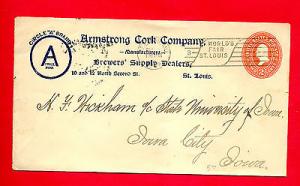 CIRCLE "A" BRAND
A
Armstrong Cork Company,
Manufacturers
Brewers' Supply Dealers,
10 and 12 North Second St. St. Louis.
WORLD'S
FAIR
ST. LOUIS
H. F. Wickham c/o State University of Iowa
Iowa City
Iowa.